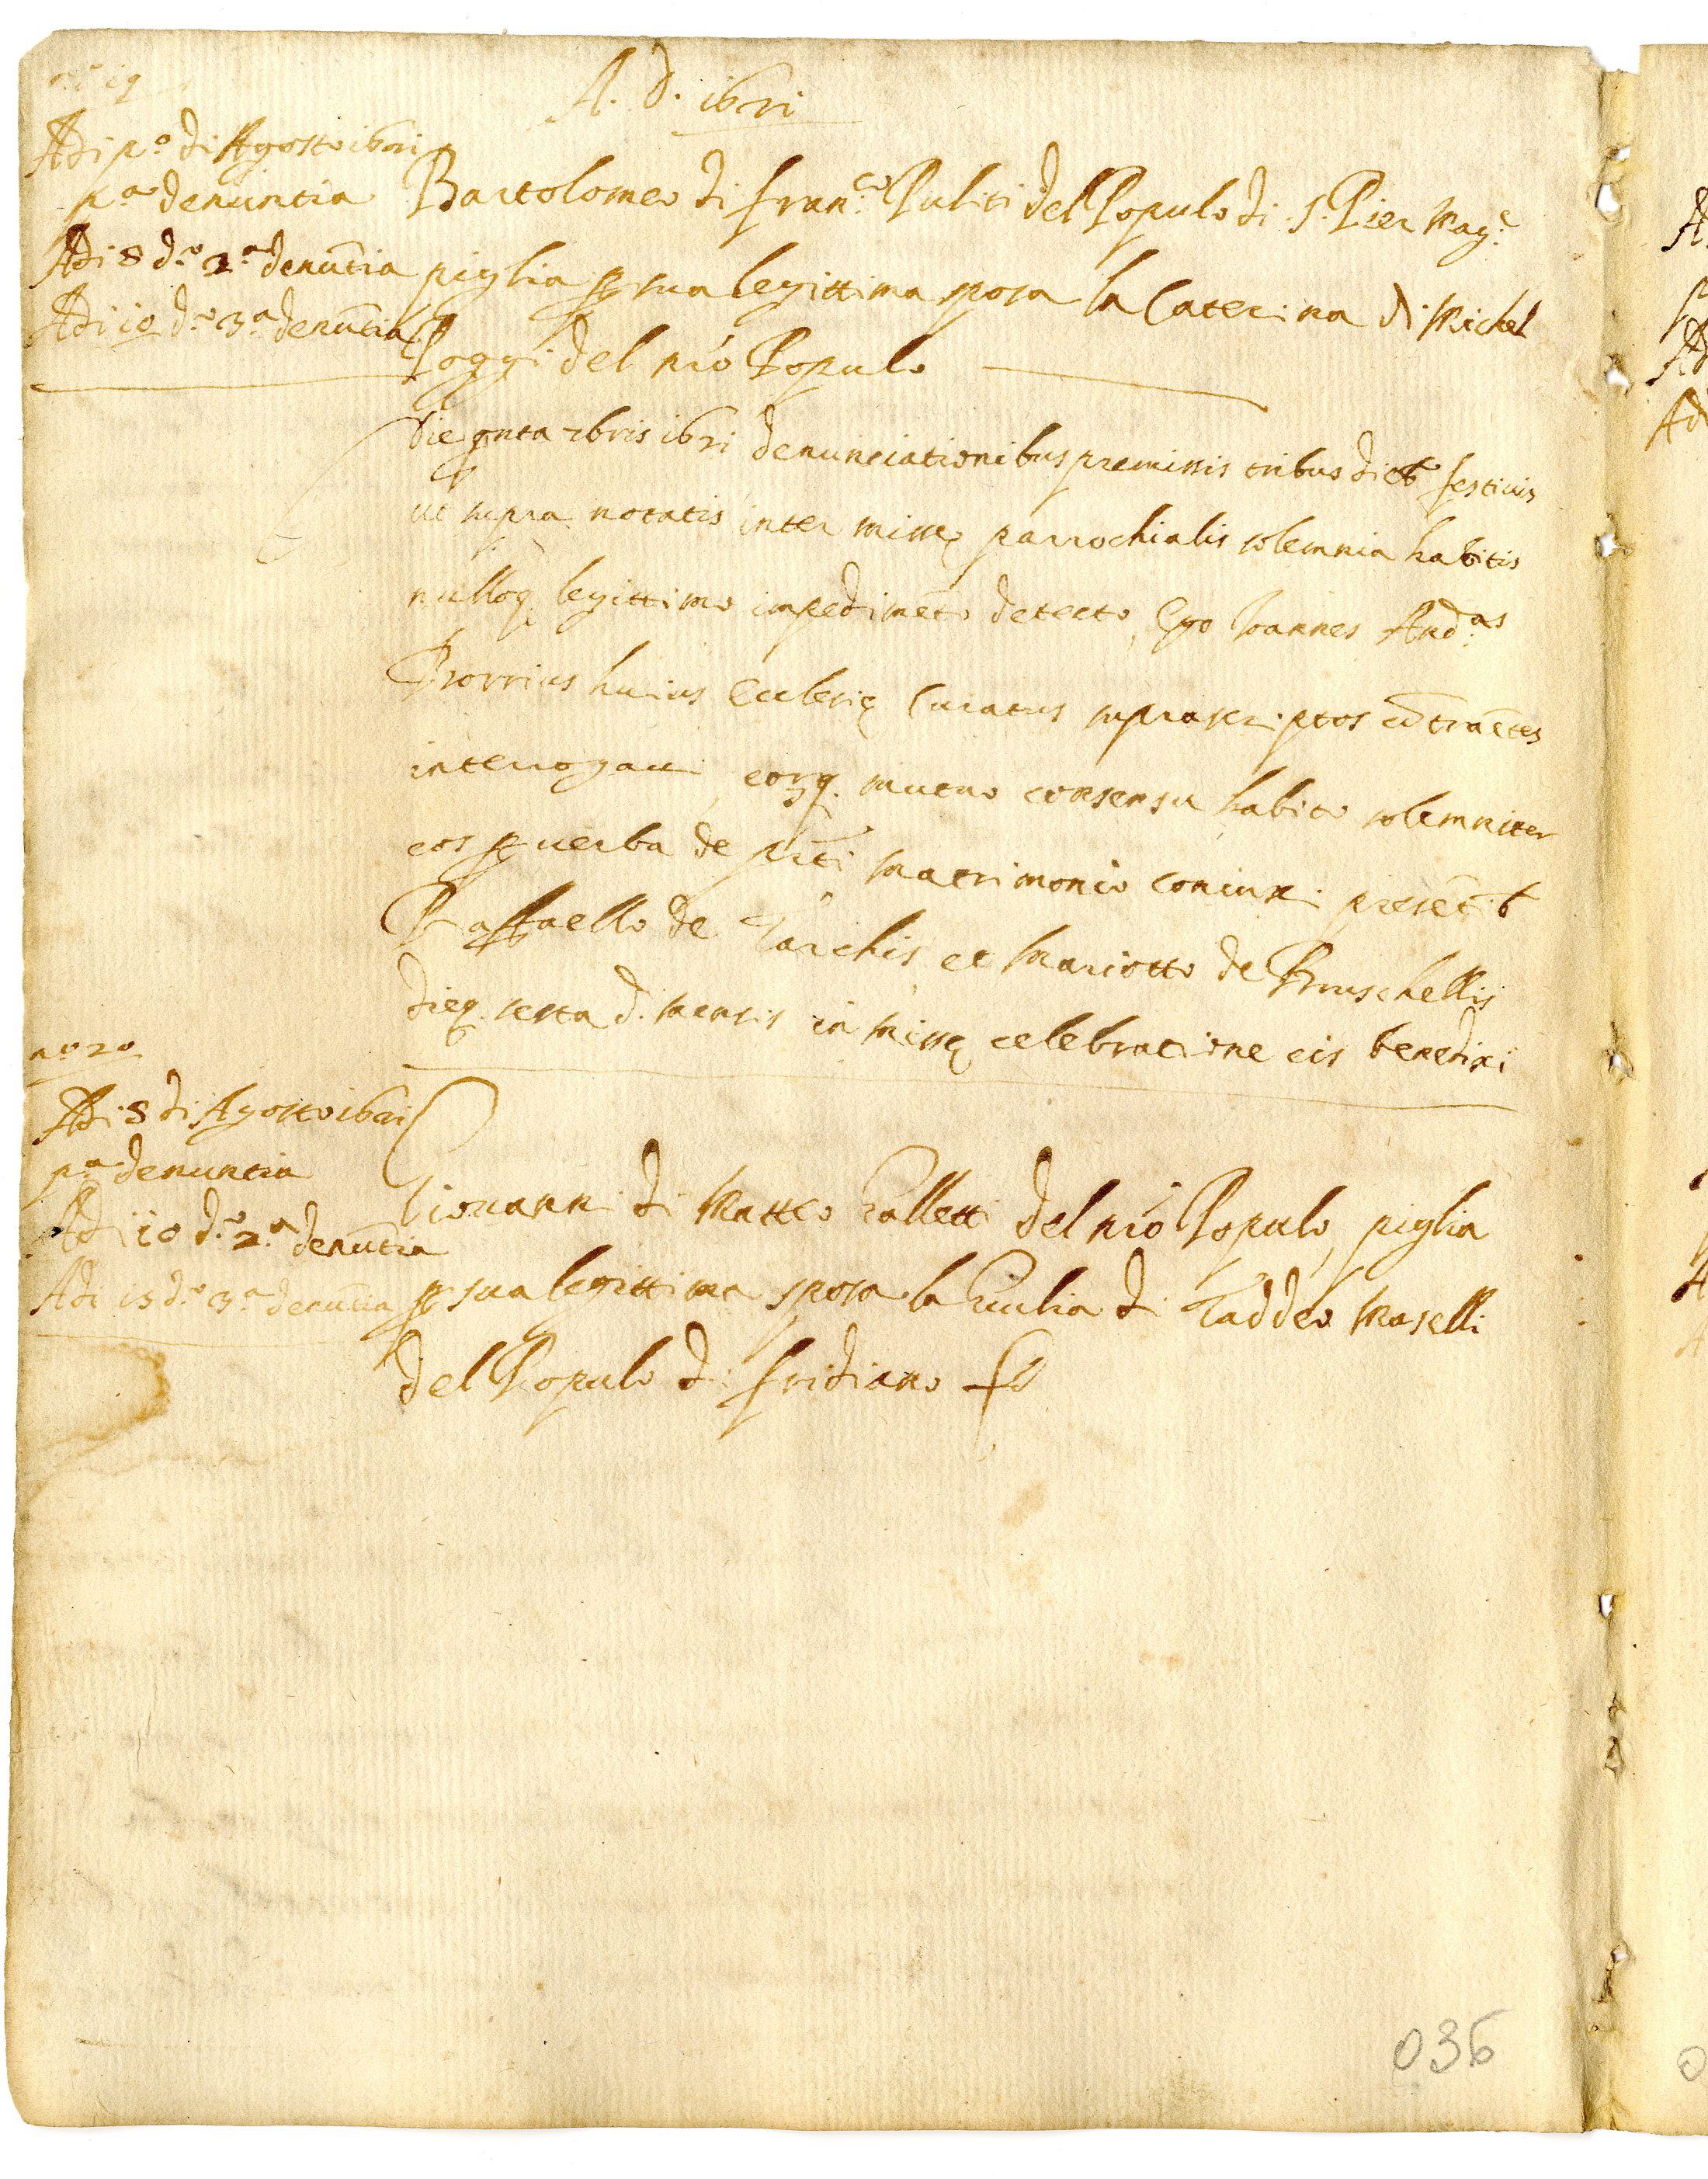 nº 19
A. D. 1621
Adi pº di Agosto 1621
pª denuntia
Adi 8 dº 2ª denũtia
Adi 10 dº 3ª denũtia
Bartolomeo di Franco Puliti del Populo di S. Pier Mage
piglia p sua legittima sposa la Caterina di Michel
Poggi del nro Populo
Die qnta 7bris 1621 denunciationibus premissis tribus dieb festiuis
ut supra notatis inter missę parrochialis solemnia habitis
nulloq legittimo impedimẽto detecto Ego Joannes Andas
huius Ecclesię Curatus suprascriptos cõtraẽtes
interrogaui, eorq. mutuo consensu habito solemniter
eos p uerba de pñti matrimonio coniunxi presẽtib
Raffaello de Tarchis et Mariotto de Bruschellis
dieq. sexta d. mensis in missę celebratione eis benedixi
nº 20
Adi 8 di Agosto 1621
pª denuntia
Adi 10 dº 2ª denũtia
Adi 15 dº 3ª denũtia
Giouanni di Matteo Galletti del nro Populo, piglia
p sua legittima sposa la Giulia di Taddeo Maselli
del Populo di Fridiano
036